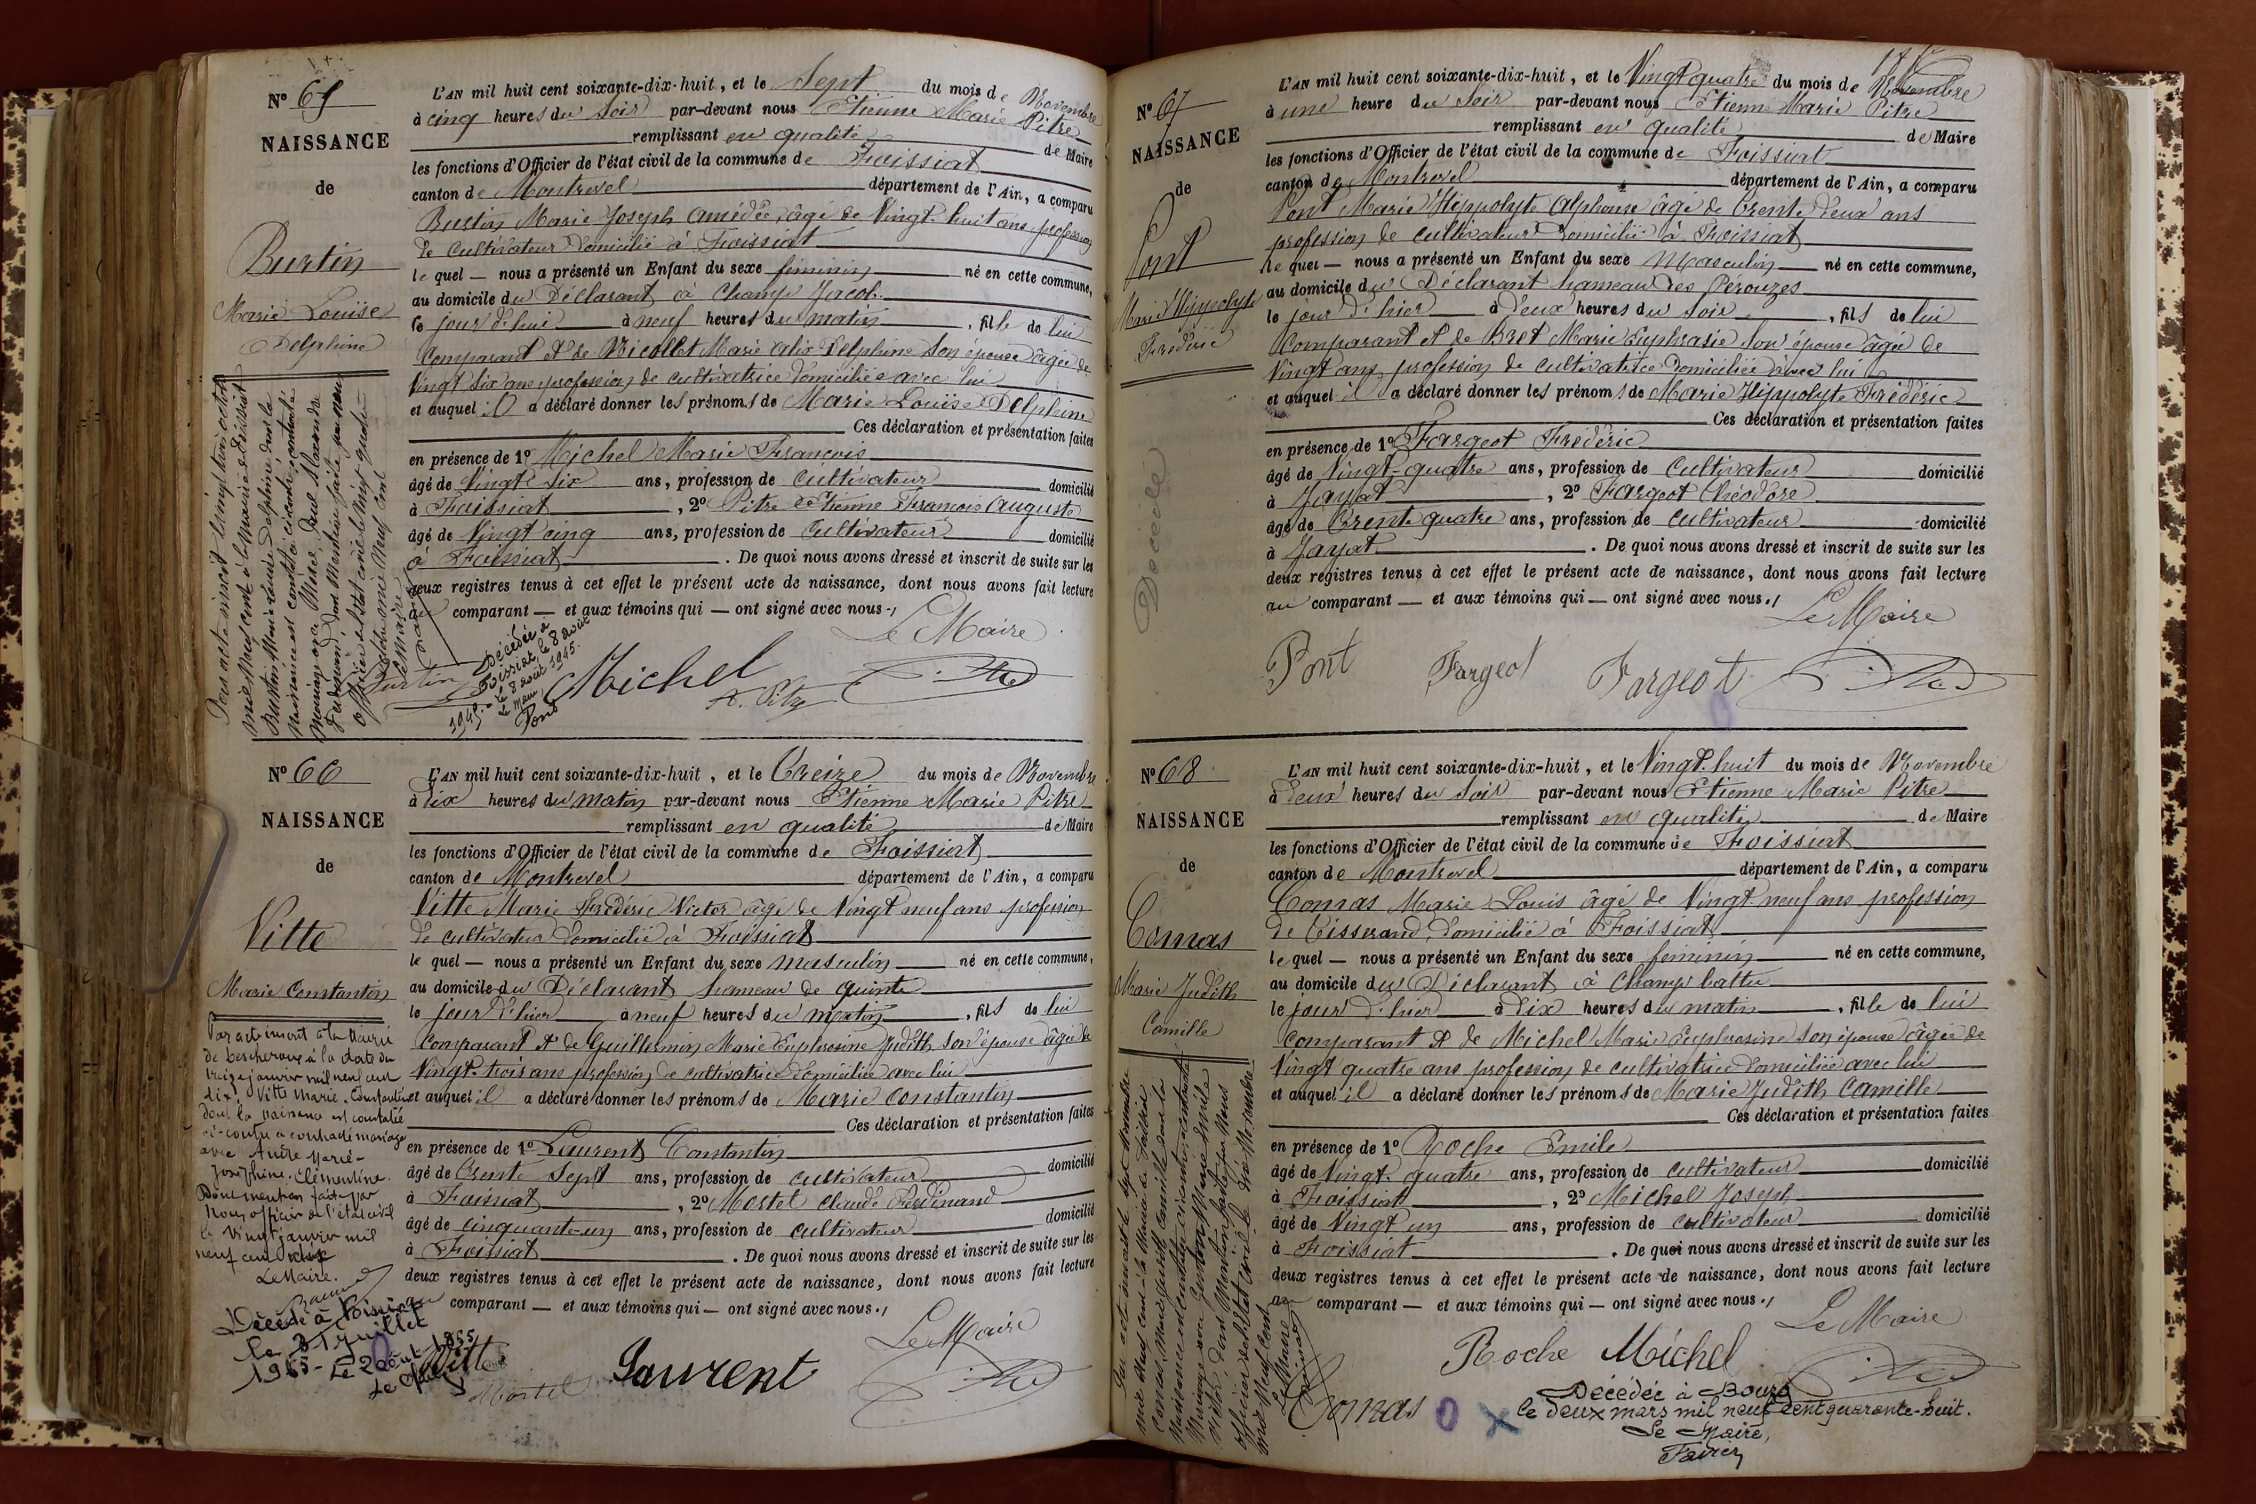 N° 65
NAISSANCE
de
Burtin
Marie Louise
Delphine
L'AN mil huit cent soixante-dix-huit, et le Sept du mois de Novembre
à cinq heures du Soir par-devant nous Etienne Marie Pitre
remplissant en qualité de Maire
les fonctions d'Officier de l'état civil de la commune de Foissiat
canton de Montrevel département de l'Ain, a comparu
Burtin Marie Joseph Amédée, âgé de Vingt huit ans profession
de cultivateur domicilié à Foissiat
le quel — nous a présenté un Enfant du sexe féminin né en cette commune,
au domicile du Déclarant à Champ Jacob
le jour d'hui à neuf heures du matin, fille de lui
Comparant et de Nicollet Marie Delphine Son épouse âgée de
Vingt Six ans profession de cultivatrice domiciliée avec lui
et auquel il a déclaré donner les prénoms de Marie Louise Delphine
Ces déclaration et présentation faites
en présence de 1° Michel Marie François
âgé de Vingt Six ans, profession de cultivateur domicilié
à Foissiat, 2° Pitre Etienne François Auguste
âgé de Vingt cinq ans, profession de Cultivateur domicilié
à Foissiat. De quoi nous avons dressé et inscrit de suite sur les
deux registres tenus à cet effet le présent acte de naissance, dont nous avons fait lecture
au comparant — et aux témoins qui — ont signé avec nous.
Le Maire
Burtin Michel A. Pitre Pitre
Décédée à
Foissiat, le 8 août
1945. - le 8 août 1945.
Le Maire
N° 66
NAISSANCE
de
Vitte
Marie Constantin
Par acte inscrit à la Mairie
de Lescheroux à la date du
treize janvier mil neuf cent
dix, Vitte Marie Constantin
dont la naissance est constatée
ci-contre a contracté mariage
avec Marie
Joséphine Clémentine.
Dont mention faite par
Nous officier de l'état civil
le Vingt janvier mil
neuf cent dix
Le Maire.
Décédé à Foissiat
le 31 juillet
1955 - Le 2 août 1955
Le Maire
L'AN mil huit cent soixante-dix-huit, et le Treize du mois de Novembre
à dix heures du matin par-devant nous Etienne Marie Pitre
remplissant en qualité de Maire
les fonctions d'Officier de l'état civil de la commune de Foissiat
canton de Montrevel département de l'Ain, a comparu
Vitte Marie Frédéric Victor âgé de Vingt neuf ans profession
de cultivateur domicilié à Foissiat
le quel — nous a présenté un Enfant du sexe masculin né en cette commune,
au domicile du Déclarant hameau de quinte
le jour d'hier à neuf heures du matin, fils de lui
Comparant et de Guillermin Marie Euphrosine Judith Son épouse âgée de
Vingt-trois ans profession de cultivatrice domiciliée avec lui
et auquel il a déclaré donner les prénoms de Marie Constantin
Ces déclaration et présentation faites
en présence de 1° Laurent Constantin
âgé de Trente Sept ans, profession de cultivateur domicilié
à Foissiat, 2° Mortel Claude Ferdinand
âgé de cinquante-un ans, profession de cultivateur domicilié
à Foissiat. De quoi nous avons dressé et inscrit de suite sur les
deux registres tenus à cet effet le présent acte de naissance, dont nous avons fait lecture
au comparant — et aux témoins qui — ont signé avec nous.
Le Maire
Vitte Mortel Laurent Pitre
N° 67
NAISSANCE
de
Pont
Marie Hippolyte
Frédéric
Décédé
L'AN mil huit cent soixante-dix-huit, et le Vingt quatre du mois de Novembre
à une heure du Soir par-devant nous Etienne Marie Pitre
remplissant en qualité de Maire
les fonctions d'Officier de l'état civil de la commune de Foissiat
canton de Montrevel département de l'Ain, a comparu
Pont Marie Hippolyte Alphonse âgé de trente deux ans
profession de cultivateur domicilié à Foissiat
le quel — nous a présenté un Enfant du sexe Masculin né en cette commune,
au domicile du Déclarant hameau des Perouzes
le jour d'hier à Deux heures du Soir, fils de lui
Comparant et de Bret Marie Euphrasie Son épouse âgée de
Vingt ans profession de cultivatrice domiciliée avec lui
et auquel il a déclaré donner les prénoms de Marie Hippolyte Frédéric
Ces déclaration et présentation faites
en présence de 1° Fargeot Frédéric
âgé de Vingt-quatre ans, profession de Cultivateur domicilié
à Jayat, 2° Fargeot Théodore
âgé de Trente quatre ans, profession de cultivateur domicilié
à Jayat. De quoi nous avons dressé et inscrit de suite sur les
deux registres tenus à cet effet le présent acte de naissance, dont nous avons fait lecture
au comparant — et aux témoins qui — ont signé avec nous.
Le Maire
Pont Fargeot Fargeot Pitre
N° 68
NAISSANCE
de
Comas
Marie Judith
Camille
L'AN mil huit cent soixante-dix-huit, et le Vingt-huit du mois de Novembre
à Deux heures du Soir par-devant nous Etienne Marie Pitre
remplissant en qualité de Maire
les fonctions d'Officier de l'état civil de la commune de Foissiat
canton de Montrevel département de l'Ain, a comparu
Comas Marie Louis âgé de Vingt neuf ans profession
de Tisserand, domicilié à Foissiat
le quel — nous a présenté un Enfant du sexe féminin né en cette commune,
au domicile du Déclarant à Champ battu
le jour d'hier à dix heures du matin, fille de lui
Comparant et de Michel Marie Euphrosine Son épouse âgée de
Vingt quatre ans profession de cultivatrice domiciliée avec lui
et auquel il a déclaré donner les prénoms de Marie Judith Camille
Ces déclaration et présentation faites
en présence de 1° Roche Emile
âgé de Vingt-quatre ans, profession de cultivateur domicilié
à Foissiat, 2° Michel Joseph
âgé de Vingt un ans, profession de cultivateur domicilié
à Foissiat. De quoi nous avons dressé et inscrit de suite sur les
deux registres tenus à cet effet le présent acte de naissance, dont nous avons fait lecture
au comparant — et aux témoins qui — ont signé avec nous.
Le Maire
Comas Roche Michel Pitre
Décédée à Bourg
le deux mars mil neuf cent quarante-huit.
Le Maire,